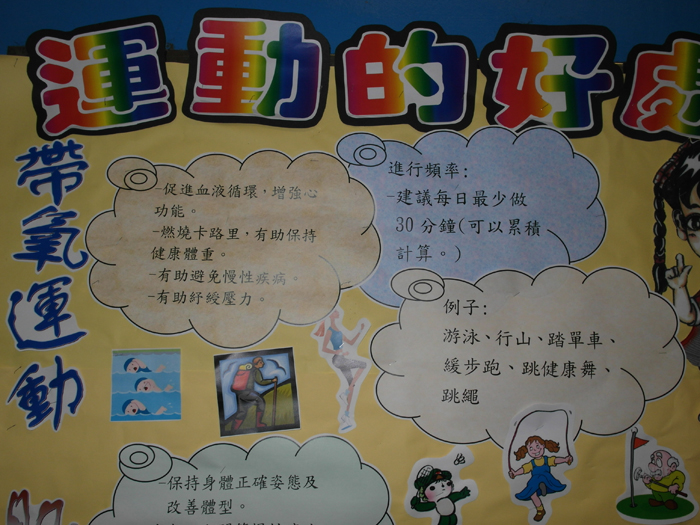 運動的好處
帶氧運動
-促進血液循環，增強心
功能。
-燃燒卡路里，有助保持
健康體重。
-有助避免慢性疾病。
-有助紓緩壓力。
進行頻率：
-建議每日最少做
30 分鐘(可以累積
計算。)
例子：
游泳、行山、踏單車、
緩步跑、跳健康舞、
跳繩
-保持身體正確姿態及
改善體型。